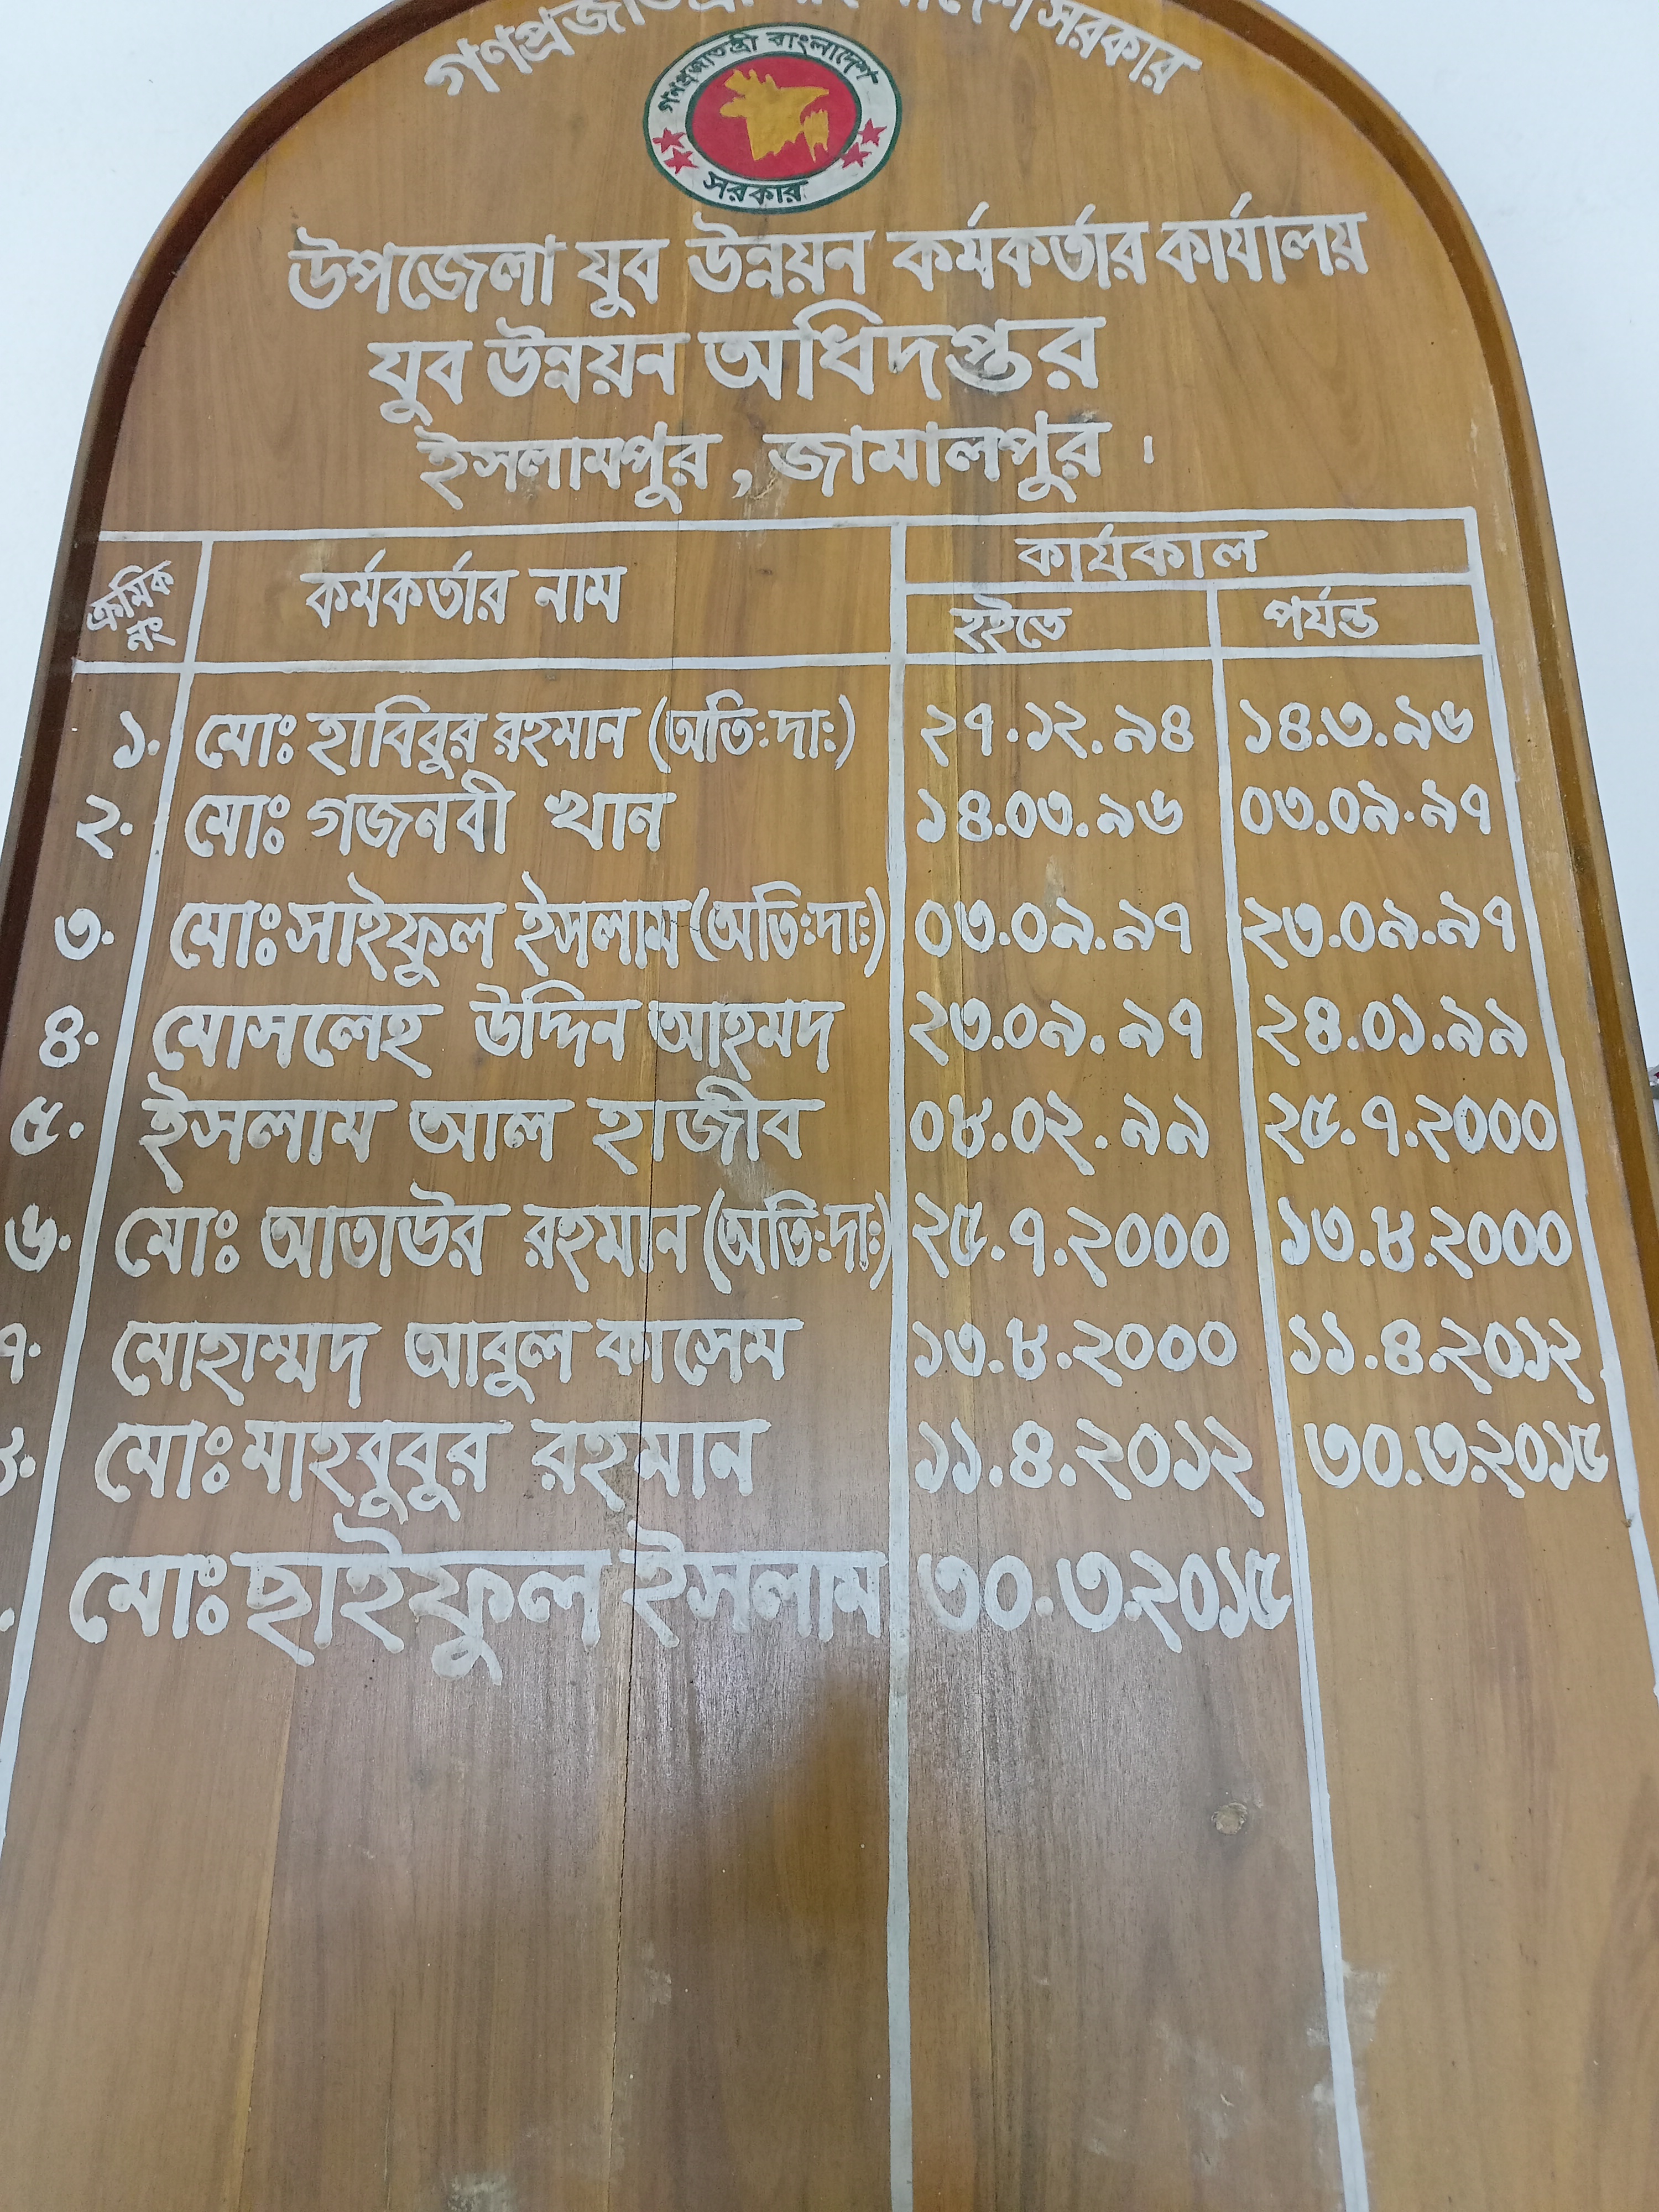 গণপ্রজাতন্ত্রী বাংলাদেশ সরকার
গণপ্রজাতন্ত্রী বাংলাদেশ
সরকার
উপজেলা যুব উন্নয়ন কর্মকর্তার কার্যালয়
যুব উন্নয়ন অধিদপ্তর
ইসলামপুর, জামালপুর ।
ক্রমিক নং কর্মকর্তার নাম কার্যকাল
হইতে পর্যন্ত
১. মোঃ হাবিবুর রহমান (অতি:দা:) ২৭.১২.৯৪ ১৪.৩.৯৬
২. মোঃ গজনবী খান ১৪.০৩.৯৬ ০৩.০৯.৯৭
৩. মোঃ সাইফুল ইসলাম (অতি:দা:) ০৩.০৯.৯৭ ২৩.০৯.৯৭
৪. মোসলেহ উদ্দিন আহমদ ২৩.০৯.৯৭ ২৪.০১.৯৯
৫. ইসলাম আল হাজীব ০৪.০২.৯৯ ২৫.৭.২০০০
৬. মোঃ আতাউর রহমান (অতি:দা:) ২৫.৭.২০০০ ১৩.৮.২০০০
৭. মোহাম্মদ আবুল কাসেম ১৩.৮.২০০০ ১১.৪.২০১২
৮. মোঃ মাহবুবুর রহমান ১১.৪.২০১২ ৩০.৩.২০১৫
মোঃ ছাইফুল ইসলাম ৩০.৩.২০১৫